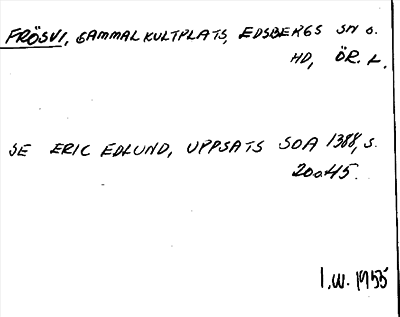 FRÖSVI, GAMMAL KULTPLATS, EDSBERGS SN O.
HD, ÖR. L.
SE ERIC EDLUND, UPPSATS SOA 1388, S.
20 o 45.
I.W. 1955